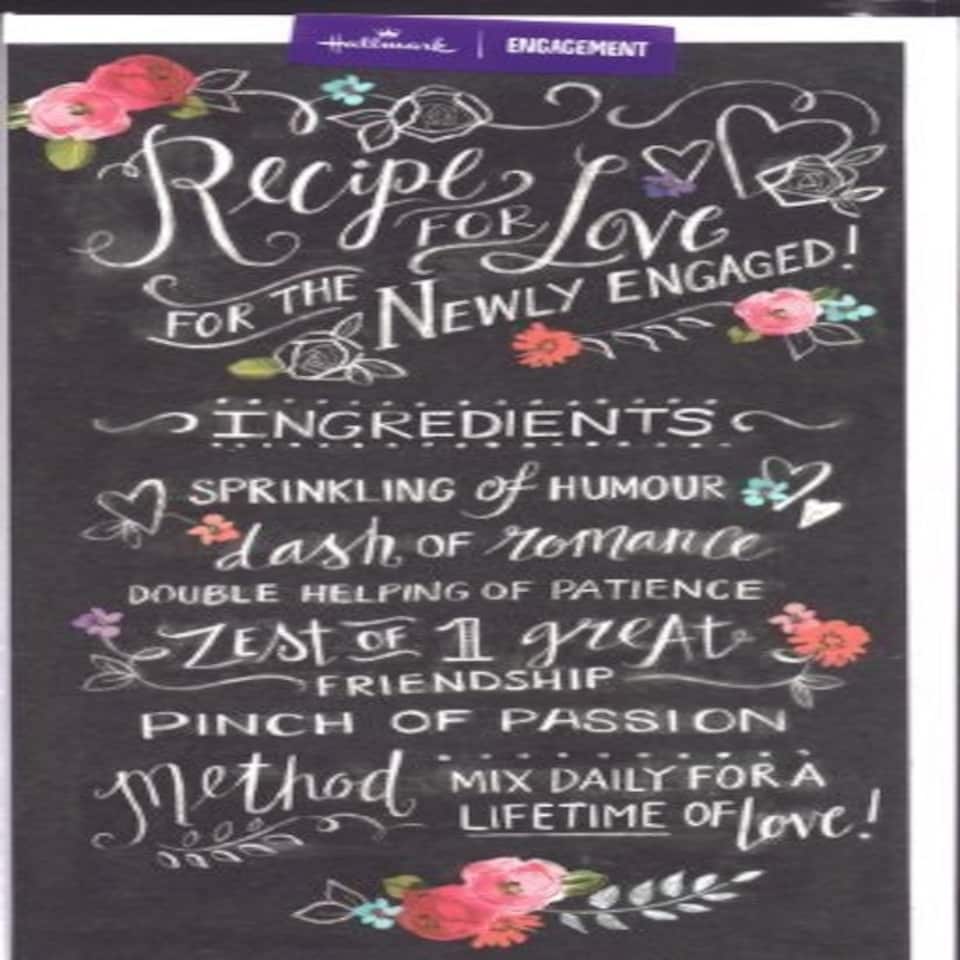 Hallmark | ENGAGEMENT
Recipe FOR Love
FOR THE NEWLY ENGAGED!
INGREDIENTS
SPRINKLING of HUMOUR
dash OF romance
DOUBLE HELPING OF PATIENCE
ZEST OF 1 greAt
FRIENDSHIP
PINCH OF PASSION
Method MIX DAILY FOR A
LIFETIME OF love!